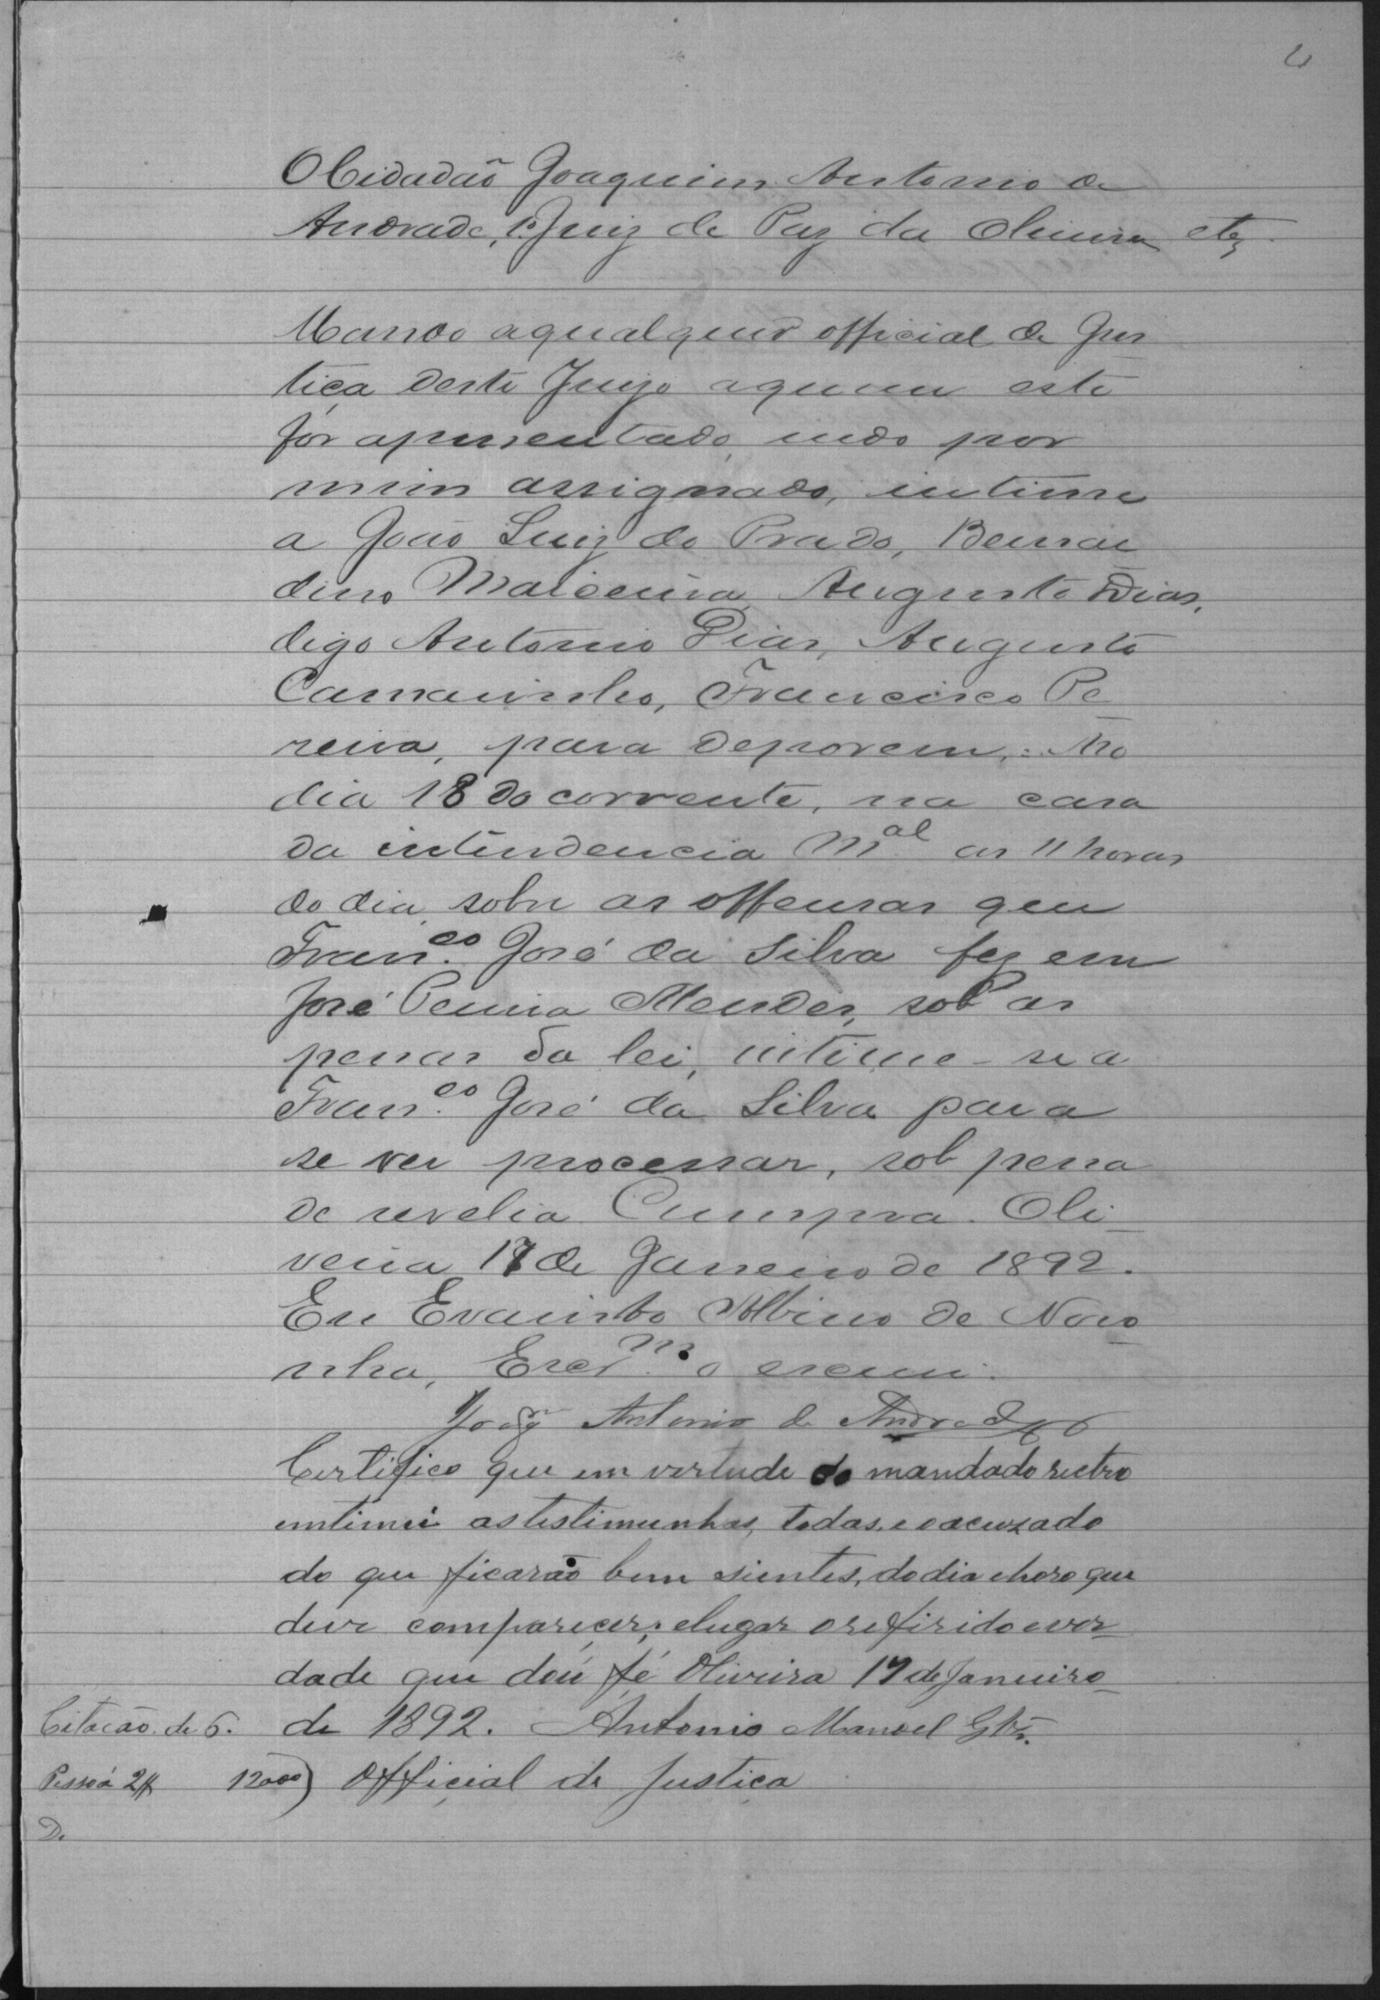 O Cidadão Joaquim Antonio de
Andrade, 1º Juiz de Paz da Oliveira etc
Mando aqualquer official de Jus
tiça deste Juizo aquem este
fôr apresentado, indo por
mim assignado, intime
a João Luiz do Prado, Bernar
dino Augusto Dias,
digo Antonio Dias, Augusto
Camarinho, Francisco Pe
reira, para deporem, no
dia 18 do corrente, na casa
da intendencia M.al as 11 horas
do dia, sobre as offensas que
Fran.co José da Silva fez em
José Pereira Mendes, sob as
penas da lei, intime-se a
Fran.co José da Silva para
se ver processar, sob pena
de revelia. Cumpra. Oli-
veira 17 de Janeiro de 1892.
Eu Evaristo Albino de Noro
nha, Escr.m o escrevi.
Joaqm Antonio de Andrade
Certifico que em vertude do mandado rectro
intimei as testimunhas, todas, e o acuzado
do que ficarão bem sientes, do dia e hora que
deve compareçer; e lugar o refirido e ver-
dade que dou fé Oliveira 17 de Janueiro
Citacão de 6. de 1892. Antonio Manoel
Pessoa 2$ 12000) Official de Justiça
D.